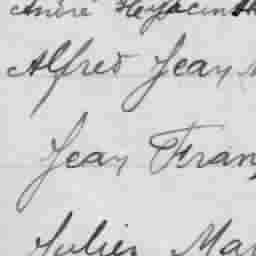 André Hyacinth
Alfred Jean
Jean Fran
Julien Mar